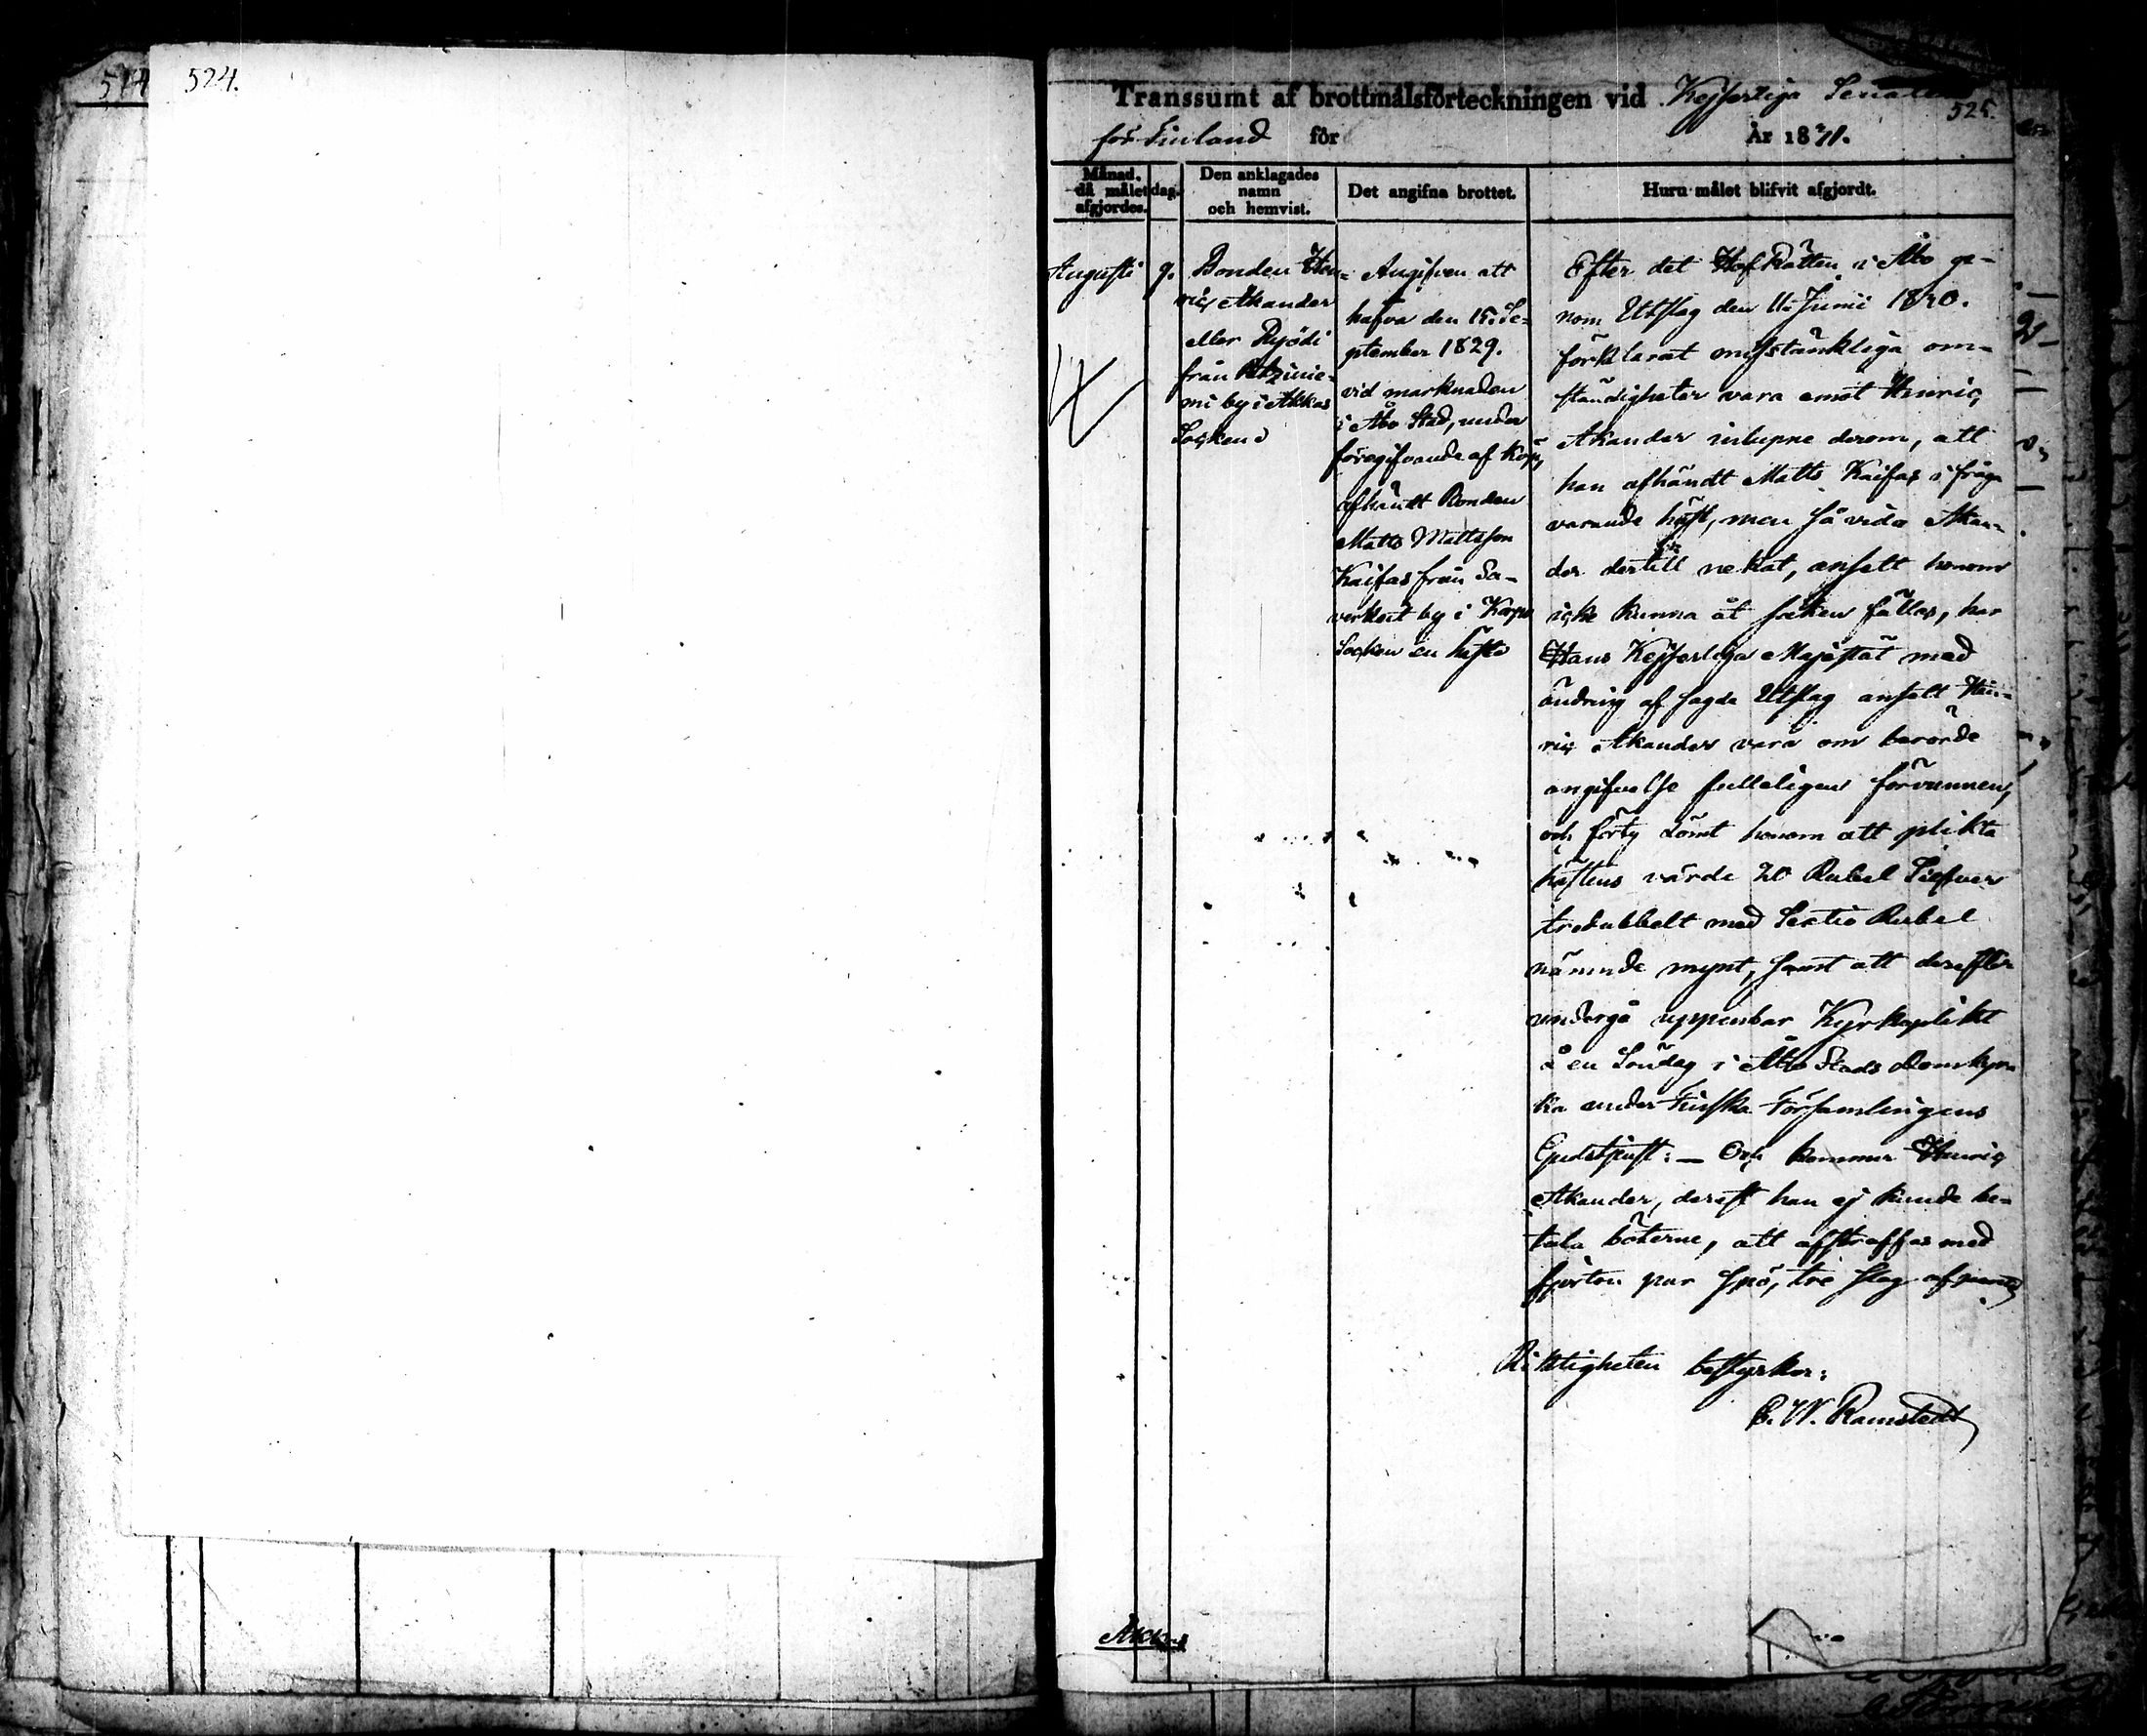 514
524.
Transsumt af brottmålsförteckningen vid Kejserliga Senaten
525.
för Finland för År 1841.
Månad. då målet afgjordes.
dag.
Den anklagades namn och hemvist.
Det angifna brottet.
Huru målet blifvit afgjordt.
Augusti
9.
Bonden Hen=
ric Akander
eller Pyödi
från
mi by i Akkas
Socken
Angifven att
hafva den 15. Se=
ptember 1829.
vid marknaden
i Åbo Stad, under
föregifvande af köp,
afhändt Bonden
Matts Mattsson
Kaifas från Sa-
verkeit by i Korpo
Socken en häst
Efter det HofRätten i Åbo ge-
nom Utslag den 11. Junii 1840.
förklarat misstänkliga om-
ständigheter vara emot Henric
Akander inlupne derom, att
han afhändt Matts Kaifas i fråga
varande häst, men så vida Akan-
der dertill nekat, ansett honom
icke kunna åt saken fällas, har
Hans Kejserliga Majestät med
ändring af sagde Utslag ansett Hen-
ric Akander vara om berörde
angifvelse fulleligen förvunnen,
och förty dömt honom att plikta
hästens värde 20 Rubel Silfver
tredubbelt med Sextio Rubel
nämnde mynt, samt att derefter
undergå uppenbar Kyrkoplikt
å en Söndag i Åbo Stads Domkyr-
ka under Finska Församlingens
Gudstjenst: — Och kommer Henric
Akander, derest han ej kunde be-
tala böterne, att afstraffas med
fjorton par spö, tre slag af paret
Riktigheten bestyrker:
C. W. Ramstedt
Akkas